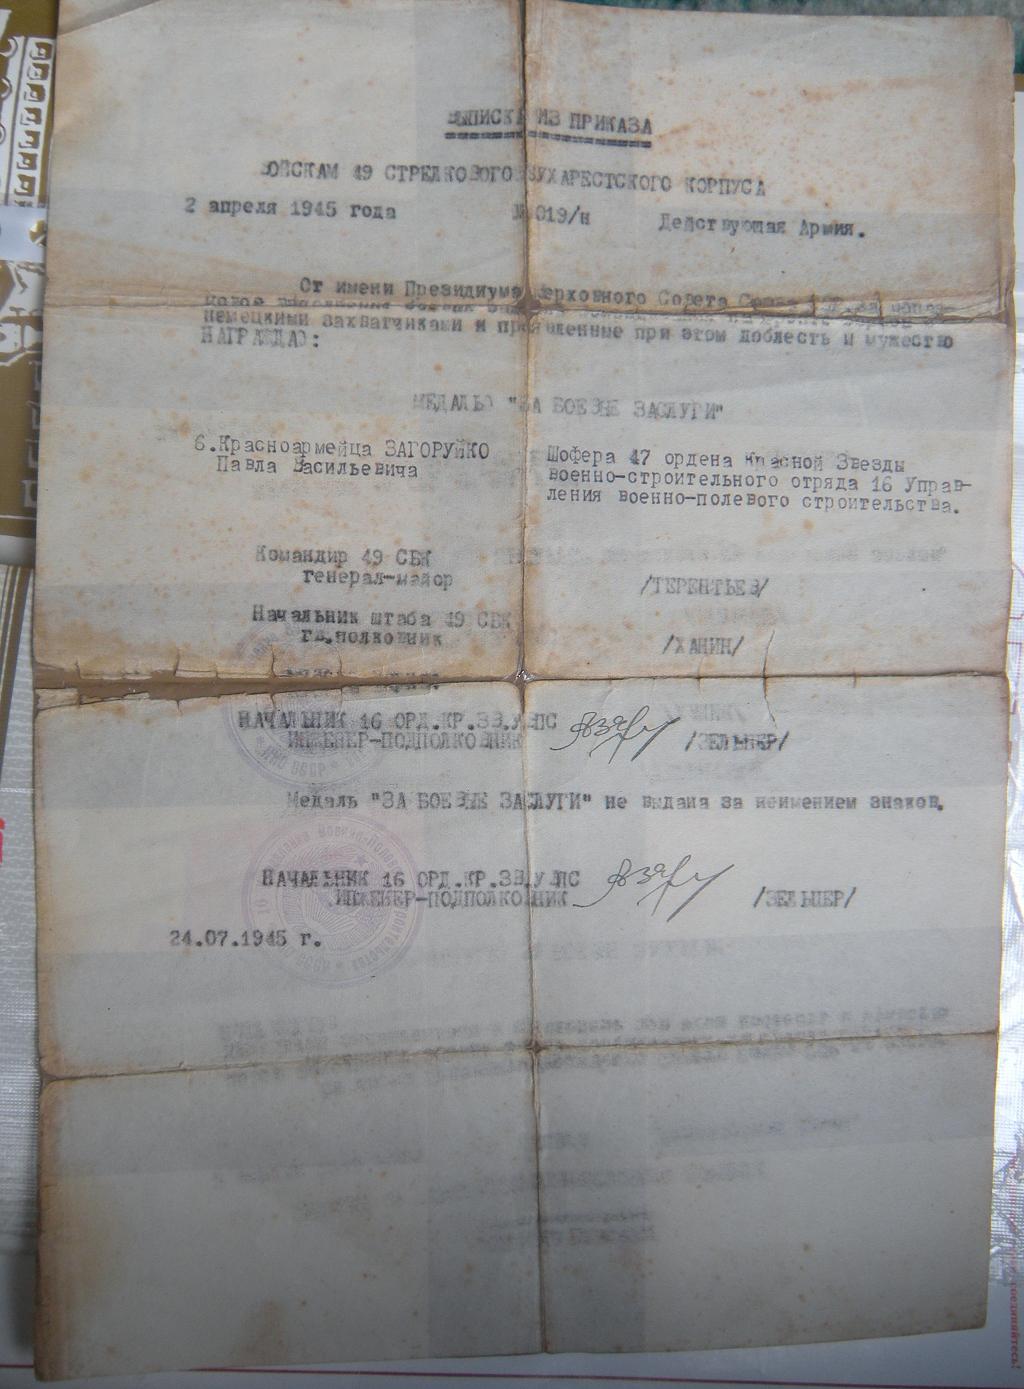 ВЫПИСКА ИЗ ПРИКАЗА
ВОЙСКАМ 49 СТРЕЛКОВОГО БУХАРЕСТСКОГО КОРПУСА
2 апреля 1945 года № 019/н Действующая Армия.
От имени Президиума Верховного Совета Союза ССР за образ-
цовое выполнение боевых
немецкими захватчиками и проявленные при этом доблесть и мужество
НАГРАЖДАЮ:
МЕДАЛЬЮ "ЗА БОЕВЫЕ ЗАСЛУГИ"
6.Красноармейца ЗАГОРУЙКО
Павла Васильевича
Шофера 47 ордена Красной Звезды
военно-строительного отряда 16 Управ-
ления военно-полевого строительства.
Командир 49 СБК
генерал-майор /ТЕРЕНТЬЕВ/
Начальник штаба 49 СБК
гв.полковник /ХАНИН/
НАЧАЛЬНИК 16 ОРД.КР.ЗВ.УВПС
ИНЖЕНЕР-ПОДПОЛКОВНИК /ЗЕЛЬЦЕР/
Медаль "ЗА БОЕВЫЕ ЗАСЛУГИ" не выдана за неимением знаков.
НАЧАЛЬНИК 16 ОРД.КР.ЗВ.УВПС
ИНЖЕНЕР-ПОДПОЛКОВНИК /ЗЕЛЬЦЕР/
24.07.1945 г.
соединяйтесь!